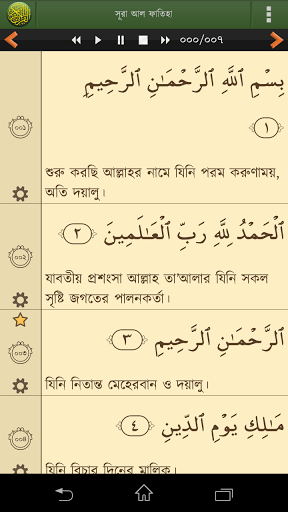 সূরা আল ফাতিহা
০০০/০০৭
بِسْمِ ٱللَّهِ ٱلرَّحْمَـٰنِ ٱلرَّحِيمِ
﴿١﴾
০০১
শুরু করছি আল্লাহর নামে যিনি পরম করুণাময়,
অতি দয়ালু।
ٱلْحَمْدُ لِلَّهِ رَبِّ ٱلْعَـٰلَمِينَ ﴿٢﴾
০০২
যাবতীয় প্রশংসা আল্লাহ তা'আলার যিনি সকল
সৃষ্টি জগতের পালনকর্তা।
ٱلرَّحْمَـٰنِ ٱلرَّحِيمِ ﴿٣﴾
০০৩
যিনি নিতান্ত মেহেরবান ও দয়ালু।
مَـٰلِكِ يَوْمِ ٱلدِّينِ ﴿٤﴾
০০৪
যিনি বিচার দিনের মালিক।